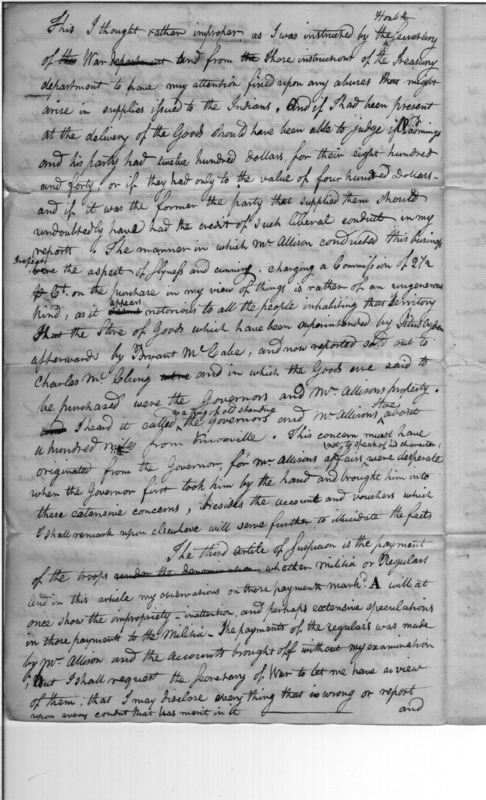 Honble
This I thought rather improper as I was instructed by the Secretary
of the War department and from the those instructions of the Treasury
department to have my attention fixed upon any abuses that might
arise in supplies issued to the Indians. And if I had been present
at the delivery of the Goods should have been able to judge if
and his party had twelve hundred dollars, for their eight hundred
and forty, or if they had only to the value of four hundred Dollars-
and if it was the former the party that supplied them should
undoubtedly have had the credit of such liberal conduct in my
report. The manner in which Mr. Allison conducted this business
were the aspect of slyness and cunning. charging a Commission of 2½
P Ct. on the purchase in my view of things is rather of an ungenerous
appears
kind, as it seems notorious to all the people inhabiting that territory
that the Store of Goods which have been superintended by Titus Ogden
afterwards by Bryant McCabe, and now reported sold out to
Charles McClung were and in which the Goods are said to
be purchased were the Governors and Mr. Allisons property.
as a thing of old standing Store
and I heard it called the Governors and Mr. Allisons about
a hundred miles from Knoxville. This concern must have
not, to speak of his character,
originated from the Governor, for Mr. Allisons affairs were desperate
when the Governor first took him by the hand and brought him into
these extensive concerns, besides the account and vouchers which
I shall remark upon elsewhere will serve further to illucidate the facts
The third article of Suspicion is the payment
of the troops under the denomination whether militia or Regulars
and in this article my observations on these payments markd A will at
once show the impropriety - inattention, and perhaps extensive speculations
in those payments to the Militia - The payments of the regulars was made
by Mr. Allison and the accounts brought off without my examination
but I shall request the Secretary of War to let me have a view
of them, that I may disclose every thing that is wrong or report
upon every conduct that has merit in it
and